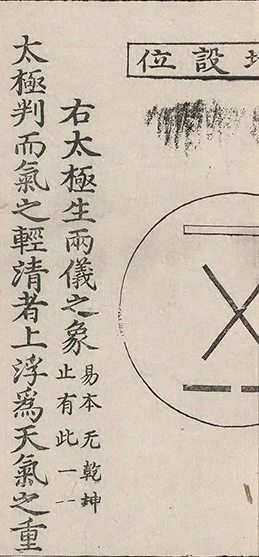 設位
右太極生兩儀之象
易本无乾坤
止有此一⚋
太極判而氣之輕清者上浮爲天氣之重